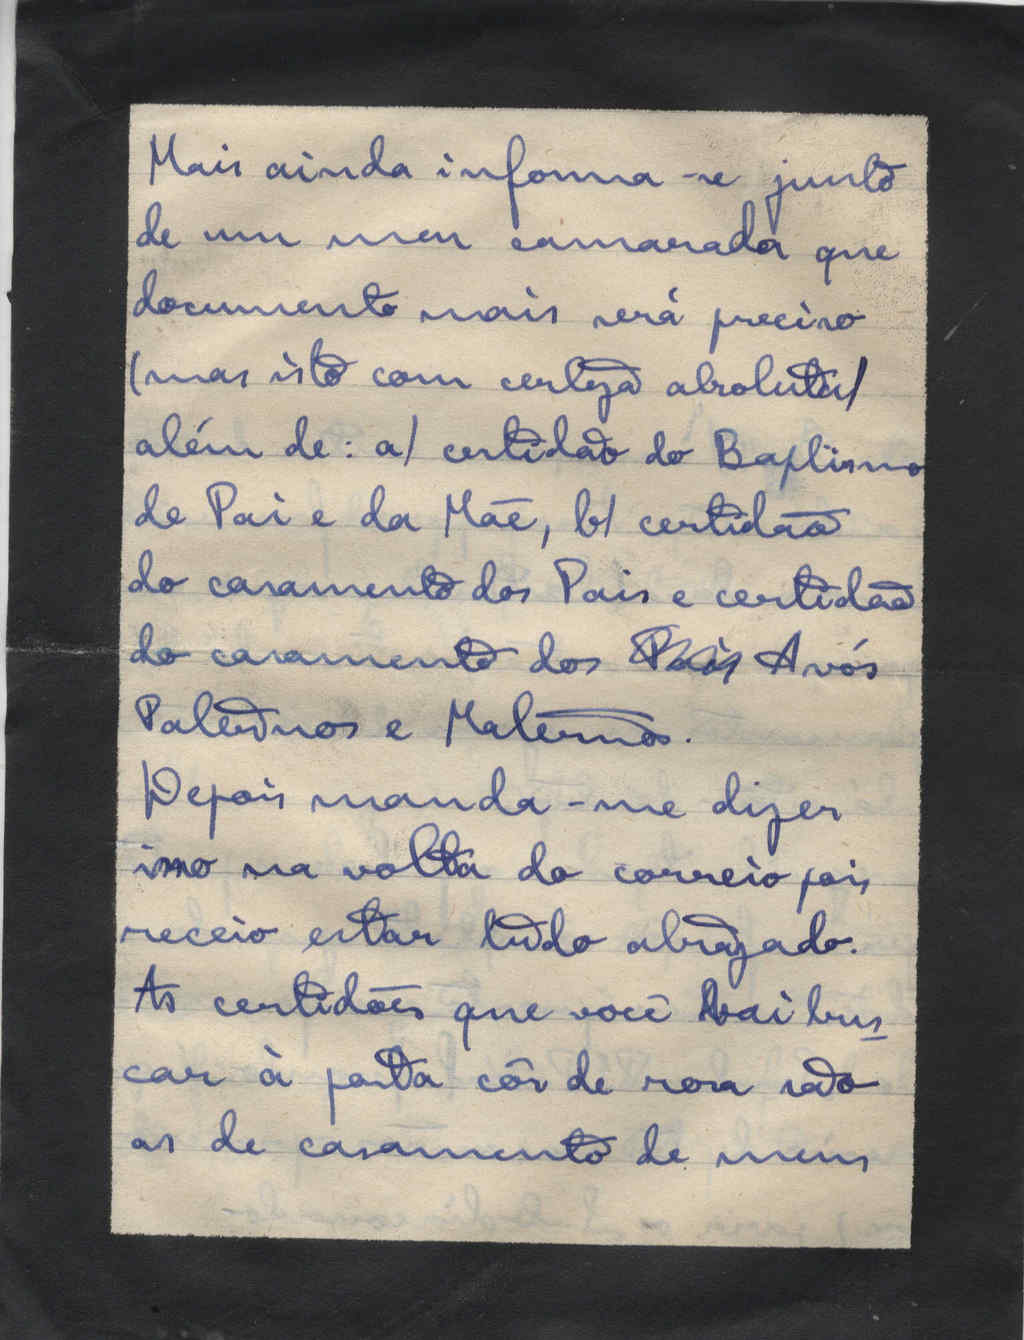 Mais ainda informa-se junto
de um meu camarada que
documento mais será preciso
(mas isto com certeza absoluta)
além de: a) certidão do Baptismo
de Pai e da Mãe, b) certidão
do casamento dos Pais e certidão
do casamento dos Pais Avós
Paternos e Maternos.
Depois manda-me dizer
isso na volta do correio pois
receio estar tudo abrazado.
As certidões que você vai bus
car à pasta côr de rosa são
as de casamento de meus